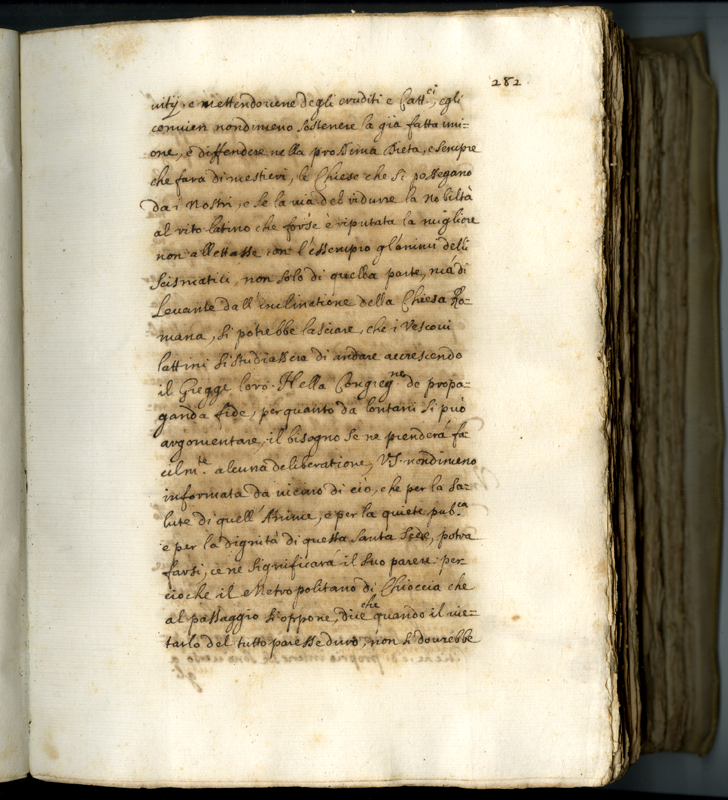 282
uitij, e mettendouene degli eruditi e Catt.ci, egli
conuien nondimeno sostenere la già fatta uni=
one, e diffendere nella prossima Dieta, e sempre
che farà di mestieri, le Chiese che si possegano
da i Nostri, e se la uia del ridurre la nobiltà
al rito latino che forse è riputata la migliore
non allettasse con l'essempio gl'animi delli
Scismatici, non solo di quella parte, mà di
Leuante dall'inclinatione della Chiesa Ro=
mana, si potrebbe lasciare, che i Vescoui
lattini si studiassero di andare accrescendo
il Gregge loro. Nella Congreg.ne de propa=
ganda fide, per quanto da lontani si può
argomentare, il bisogno se ne prenderà fa
cilm.te alcuna deliberatione, VS. nondimeno
informata da uicino di ciò, che per la sa=
lute di quell'Anime, e per la quiete pub.ca
e per la dignità di questa Santa Sede, potrà
farsi, ce ne significarà il suo parere. per=
cioche il Metropolitano di Chioccia che
al passaggio si oppone, dice che quando il uie=
tarlo del tutto paresse duro, non si dourebbe